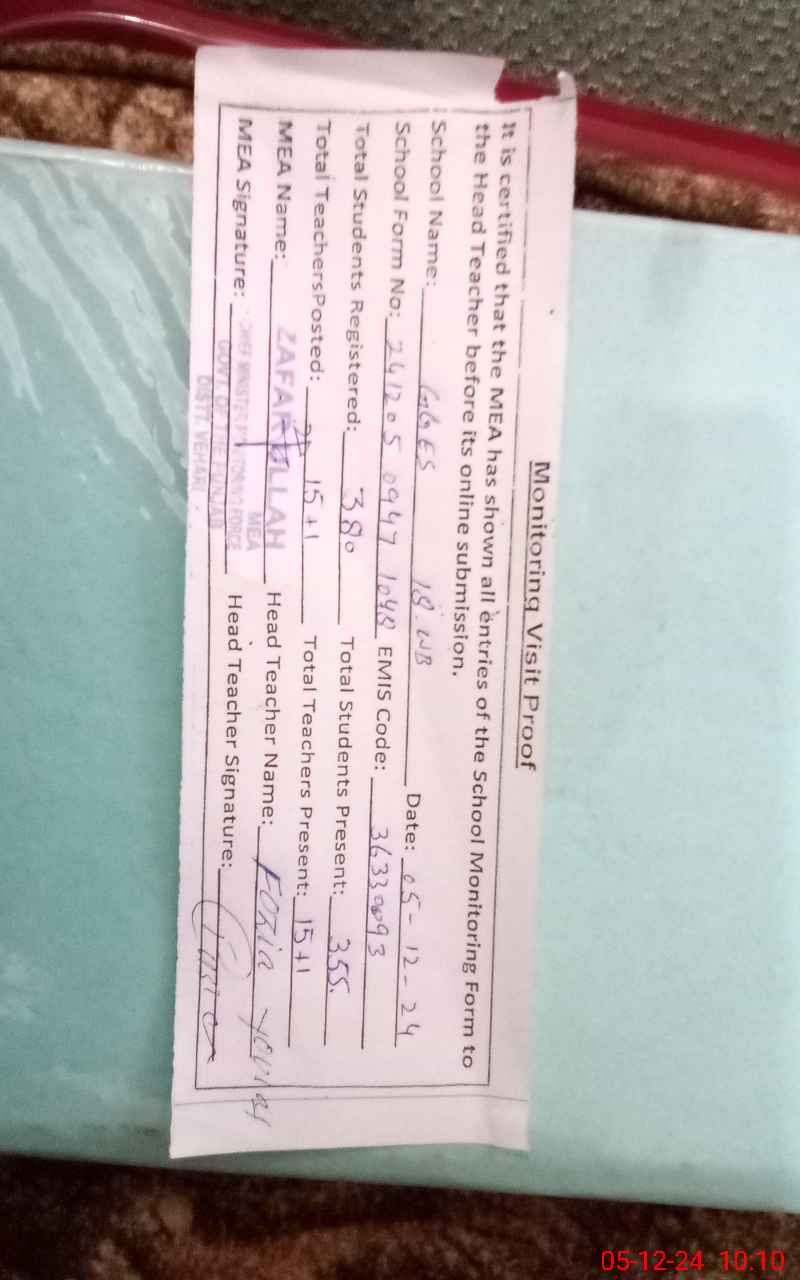 Monitoring Visit Proof
It is certified that the MEA has shown all entries of the School Monitoring Form to
the Head Teacher before its online submission.
School Name: GGES 18 WB Date: 05-12-24
School Form No: 241205 0947 1048 EMIS Code: 36330093
Total Students Registered: 380 Total Students Present: 355.
Total TeachersPosted: 15+1 Total Teachers Present: 15+1
MEA Name: ZAFAR ULLAH Head Teacher Name: Fozia
MEA Signature: Head Teacher Signature:
MEA
CHIEF MINISTER MONITORING FORCE
GOVT. OF THE PUNJAB
DISTT. VEHARI
05-12-24 10:10